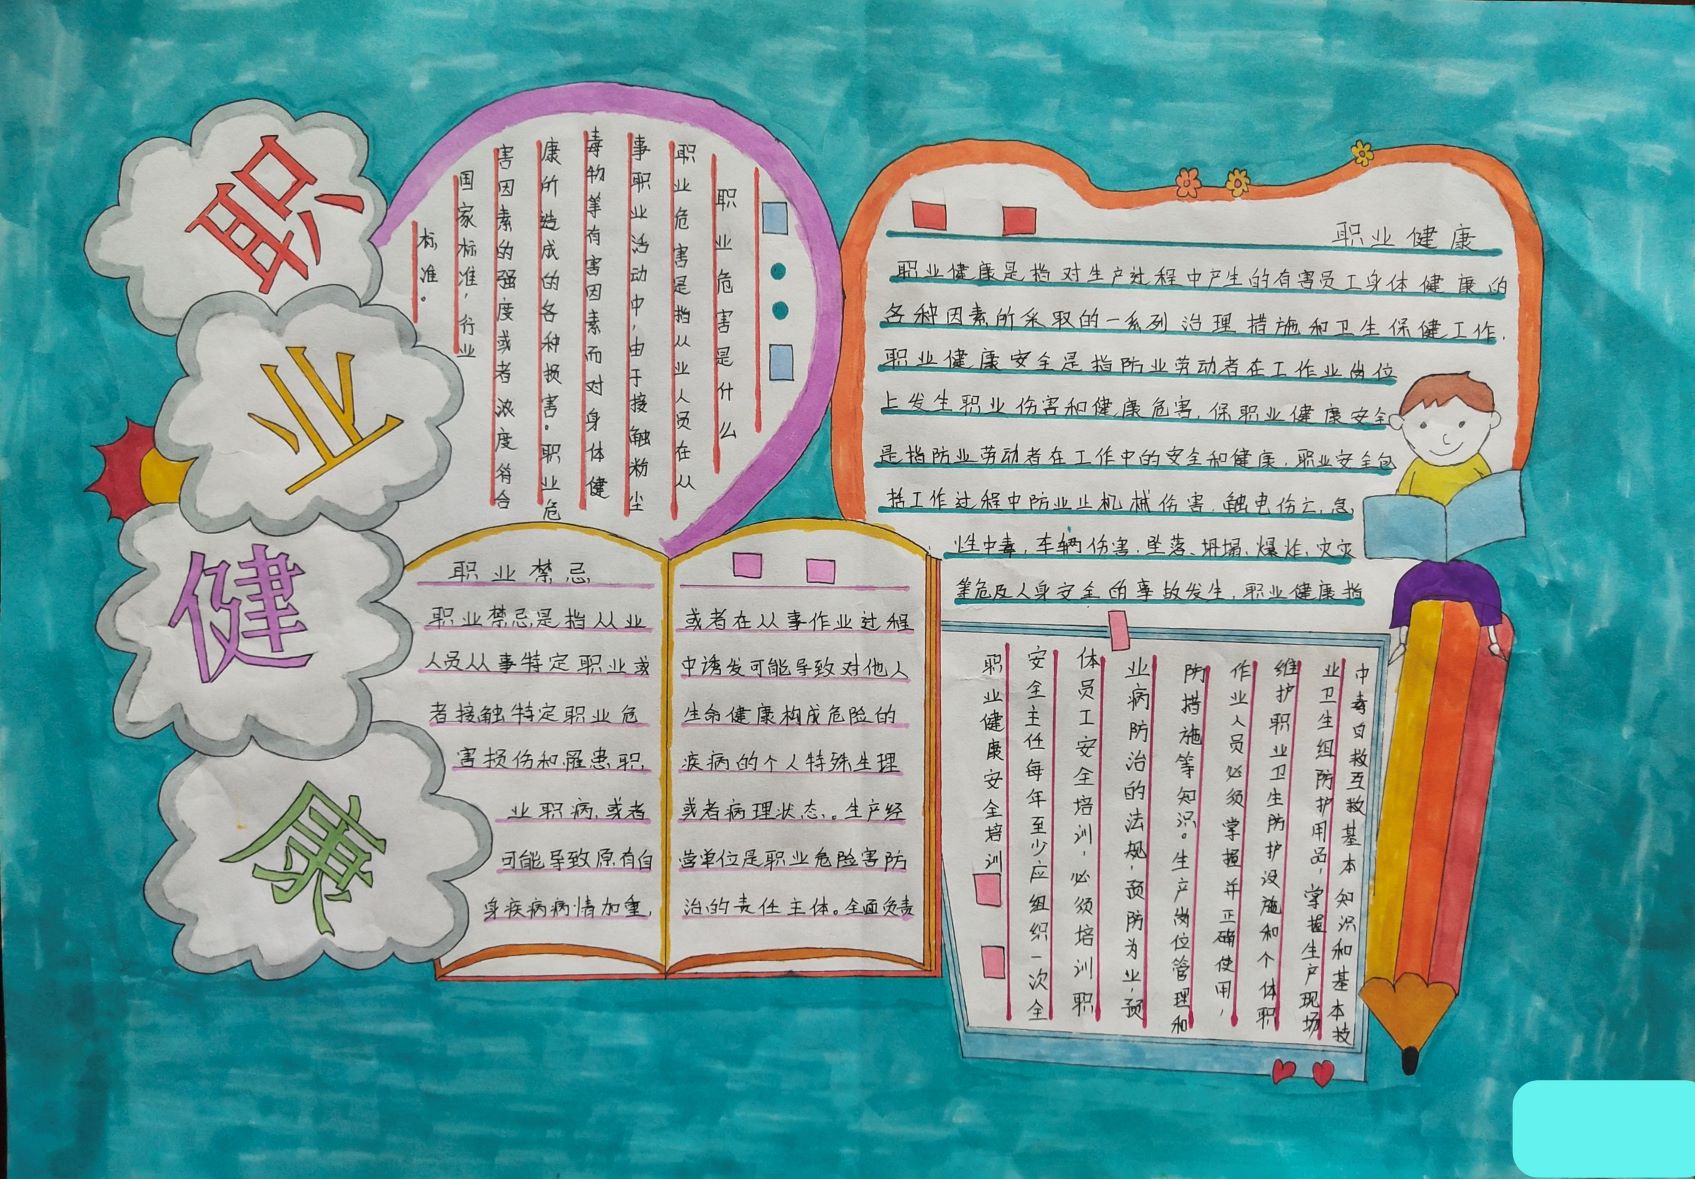 职
业
健
康
职业危害是什么
职业危害是指从业人员在从
事职业活动中,由于接触粉尘
毒物等有害因素而对身体健
康所造成的各种损害。职业危
害因素的强度或者浓度符合
国家标准,行业
标准。
职业健康
职业健康是指对生产过程中产生的有害员工身体健康的
各种因素所采取的一系列治理措施和卫生保健工作.
职业健康安全是指防业劳动者在工作业岗位
上发生职业伤害和健康危害,保职业健康安全
是指防业劳动者在工作中的安全和健康,职业安全包
括工作过程中防业止机械伤害,触电伤亡,急
性中毒,车辆伤害,坠落、坍塌、爆炸,火灾
等危及人身安全的事故发生,职业健康指
职业禁忌
职业禁忌是指从业
人员从事特定职业或
者接触特定职业危
害损伤和罹患职
业职病,或者
可能导致原有自
身疾病病情加重,
或者在从事作业过程
中诱发可能导致对他人
生命健康构成危险的
疾病的个人特殊生理
或者病理状态。生产经
营单位是职业危险害防
治的责任主体。全面负责
中毒自救互救基本知识和基本技
业卫生组防护用品,掌握生产现场
维护职业卫生防护设施和个体职
作业人员必须掌握并正确使用,
防措施等知识。生产岗位管理和
业病防治的法规,预防为业,预
体员工安全培训,必须培训职
安全主任每年至少应组织一次全
职业健康安全培训